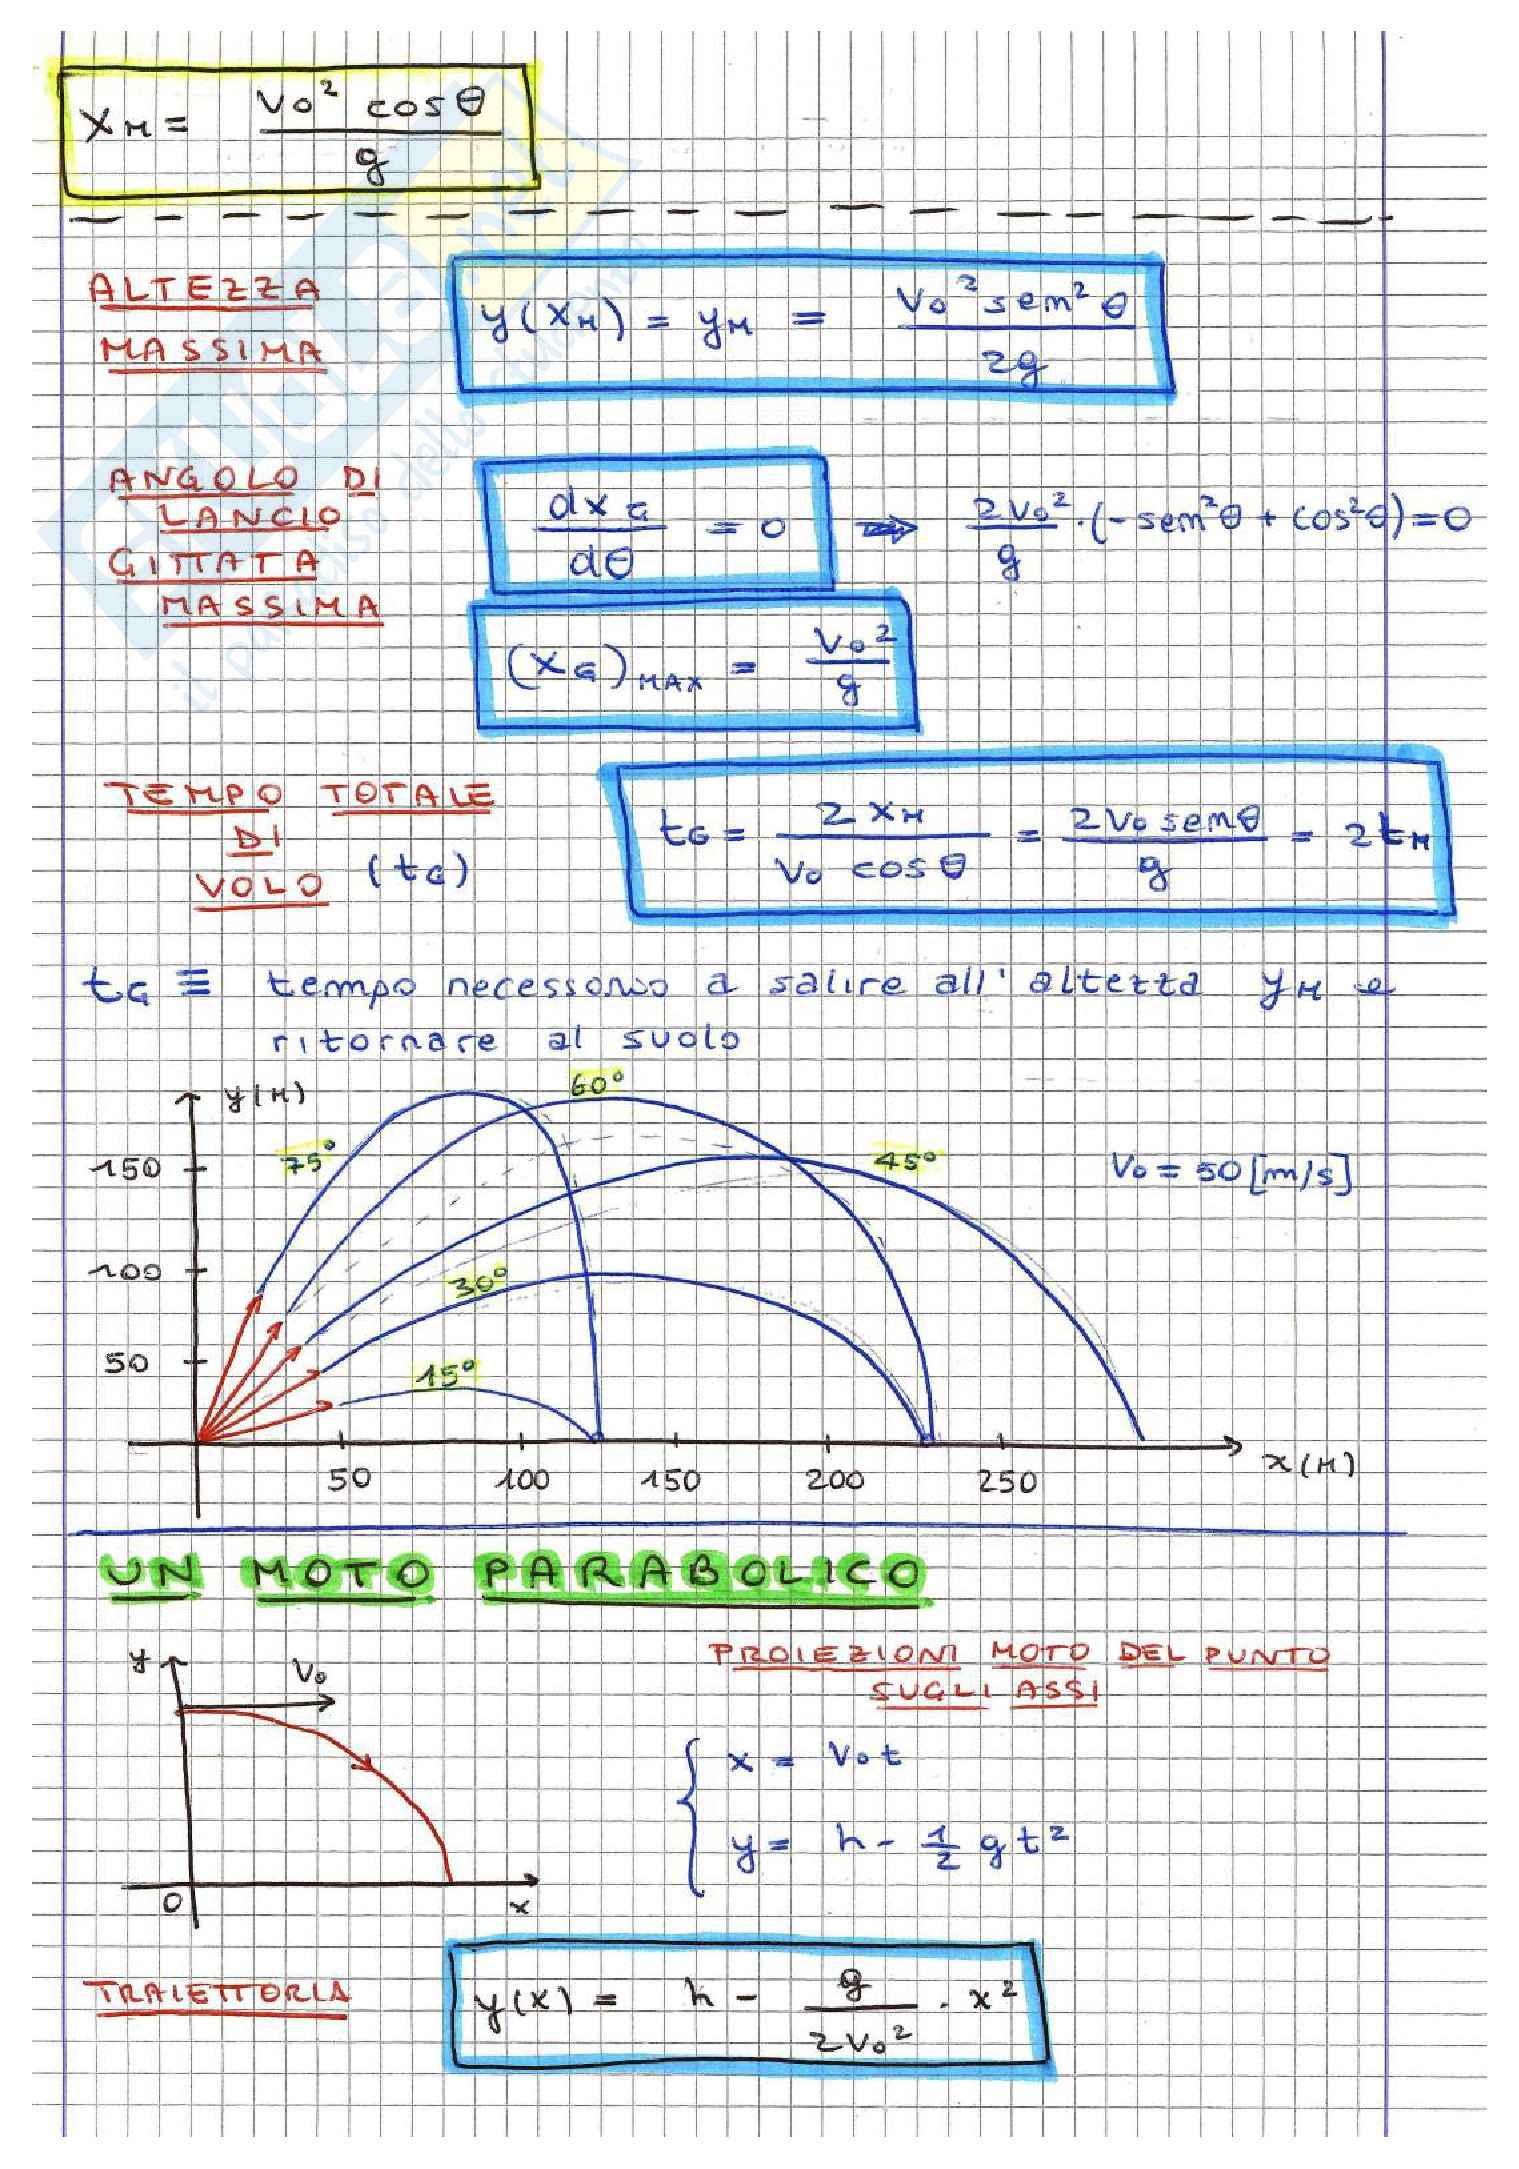 x_M = v₀² cosθ / g
ALTEZZA
MASSIMA
y(x_M) = y_M = v₀² sen²θ / 2g
ANGOLO DI
LANCIO
GITTATA
MASSIMA
dx_G / dθ = 0 ⇒ 2v₀² / g · (-sen²θ + cos²θ) = 0
(x_G)_MAX = v₀² / g
TEMPO TOTALE
DI
VOLO (t_G)
t_G = 2x_M / v₀ cosθ = 2v₀ senθ / g = 2t_M
t_G ≡ tempo necessario a salire all'altezza y_M e
ritornare al suolo
y(M)
60°
75°
45°
150
v₀ = 50 [m/s]
100
30°
50
15°
50 100 150 200 250
x(M)
UN MOTO PARABOLICO
PROIEZIONI MOTO DEL PUNTO
SUGLI ASSI
y
v₀
x = v₀t
y = h - 1/2 g t²
0
x
TRAIETTORIA
y(x) = h - g / 2v₀² · x²
il paradiso dello studente